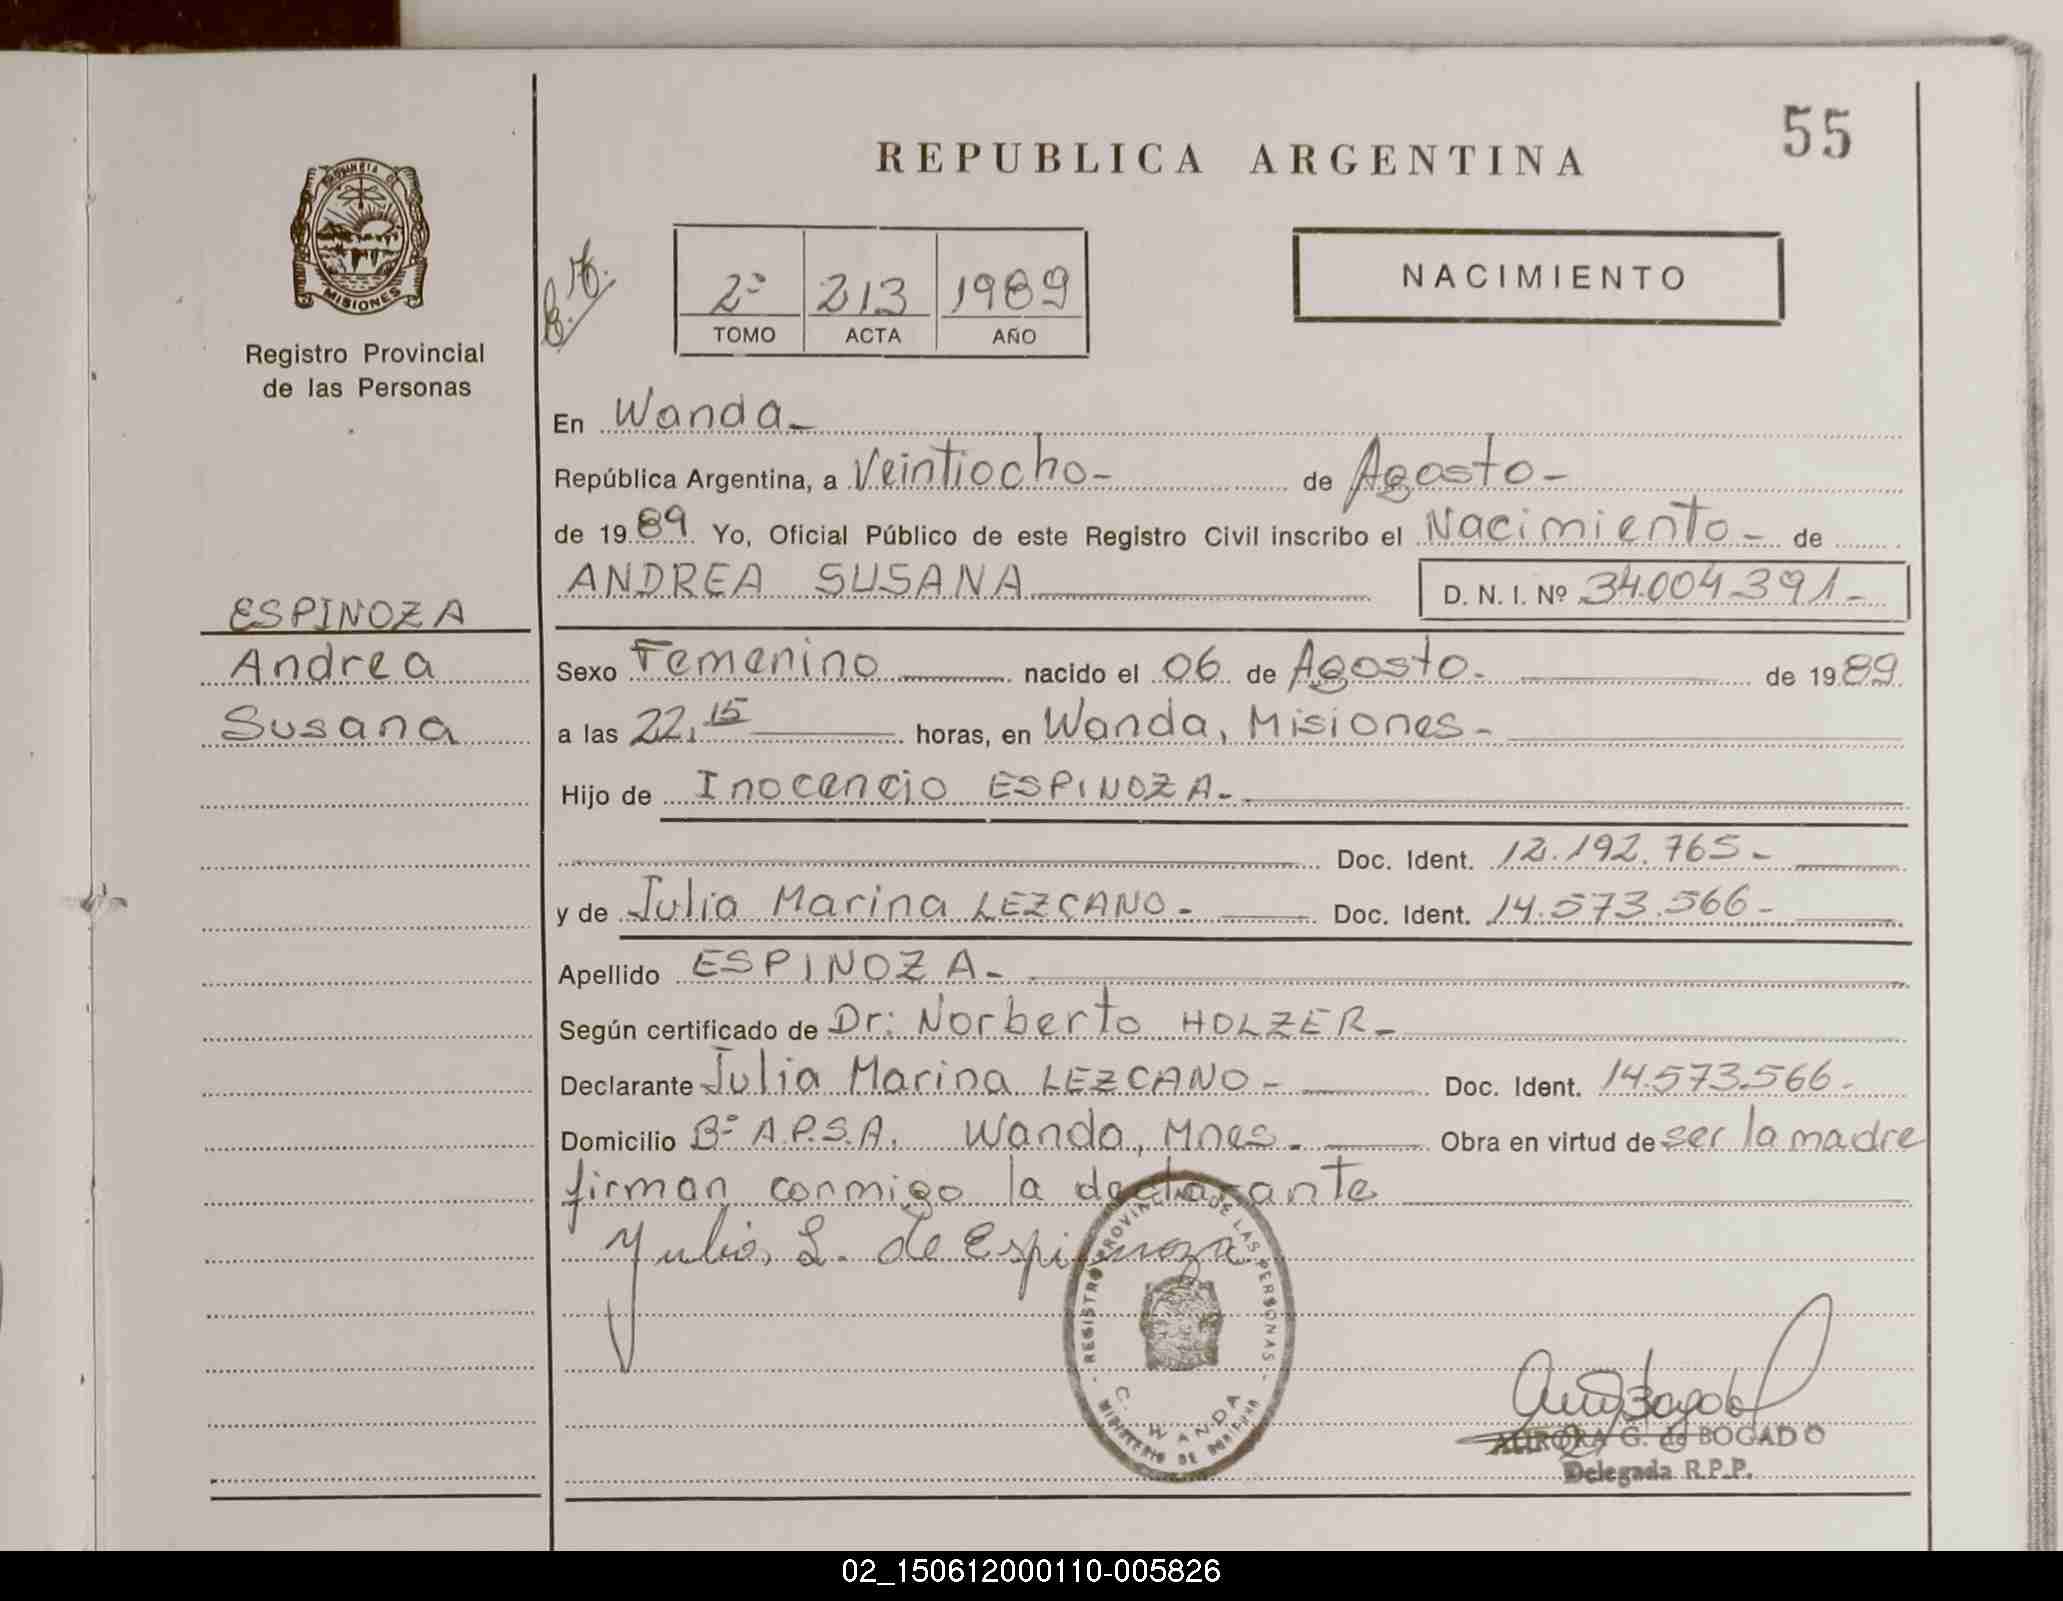 55
REPUBLICA ARGENTINA
PROVINCIA DE
MISIONES
Registro Provincial
de las Personas
2º 213 1989
TOMO ACTA AÑO
NACIMIENTO
En Wanda
República Argentina, a Veintiocho- de Agosto-
de 1989 Yo, Oficial Público de este Registro Civil inscribo el Nacimiento- de
ANDREA SUSANA D. N. I. Nº 34.004.391-
ESPINOZA
Andrea
Susana
Sexo Femenino nacido el 06 de Agosto. de 1989
a las 22,15 horas, en Wanda, Misiones-
Hijo de Inocencio ESPINOZA-
Doc. Ident. 12.192.765-
y de Julia Marina LEZCANO- Doc. Ident. 14.573.566-
Apellido ESPINOZA-
Según certificado de Dr: Norberto HOLZER-
Declarante Julia Marina LEZCANO- Doc. Ident. 14.573.566-
Domicilio Bº A.P.S.A. Wanda, Mnes. Obra en virtud de ser la madre
firman conmigo la declarante
Yulia L. de Espinoza
REGISTRO PROVINCIAL DE LAS PERSONAS
C. WANDA
MINISTERIO DE
AURORA G. de BOGADO
Delegada R.P.P.
02_150612000110-005826